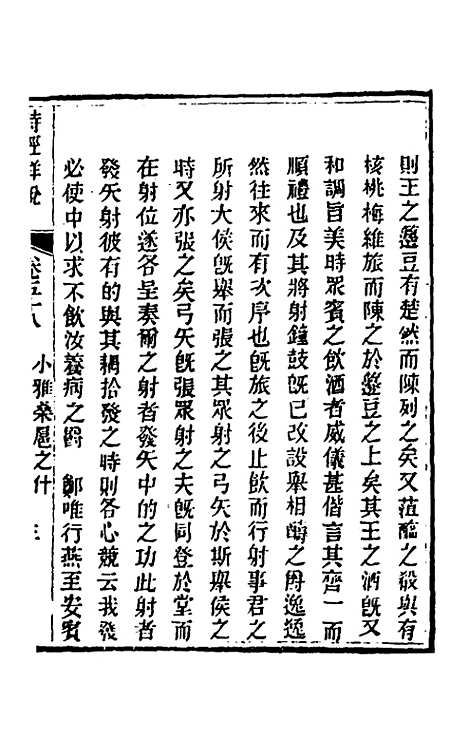 則王之籩豆有楚然而陳列之矣又菹醢之殽與有
核桃梅維旅而陳之於籩豆之上矣其王之酒旣又
和調旨美時眾賓之飲酒者威儀甚偕言其齊一而
順禮也及其將射鐘鼓旣已改設舉相酬之爵逸逸
然往來而有次序也旣旅之後止飲而行射事君之
所射大侯旣舉而張之其眾射之弓矢於斯舉侯之
時又亦張之矣弓矢旣張眾射之夫旣同登於堂而
在射位遂各呈奏爾之射者發矢中的之功此射者
發矢射彼有的與其耦拾發之時則各心競云我發
必使中以求不飲汝養病之爵　鄭唯行燕至安賓
詩經詳說　卷五十八　小雅桑扈之什　三